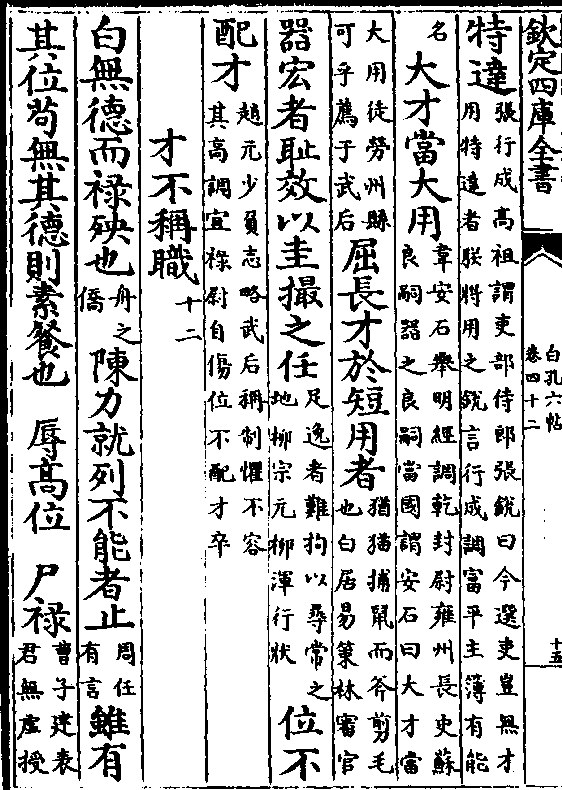 欽定四庫全書
白孔六帖
卷四十二
十五
特達張行成高祖謂吏部侍郎張銳曰今選吏豈無才
用特達者朕將用之銳言行成調富平主簿有能
名 大才當大用韋安石舉明經調乾封尉雍州長史蘇
良嗣器之良嗣當國謂安石曰大才當
大用徒勞州縣
可乎薦于武后 屈長才於短用者猶猫捕鼠而斧剪毛
也白居易策林審官
器宏者耻效以圭撮之任足逸者難拘以尋常之
地柳宗元柳渾行狀 位不
配才趙元少負志略武后稱制懼不容
其高調宜祿尉自傷位不配才卒
才不稱職十二
白無德而祿殃也舟之
僑 陳力就列不能者止周任
有言 雖有
其位苟無其德則素餐也 辱高位 尸祿曹子建表
君無虛授